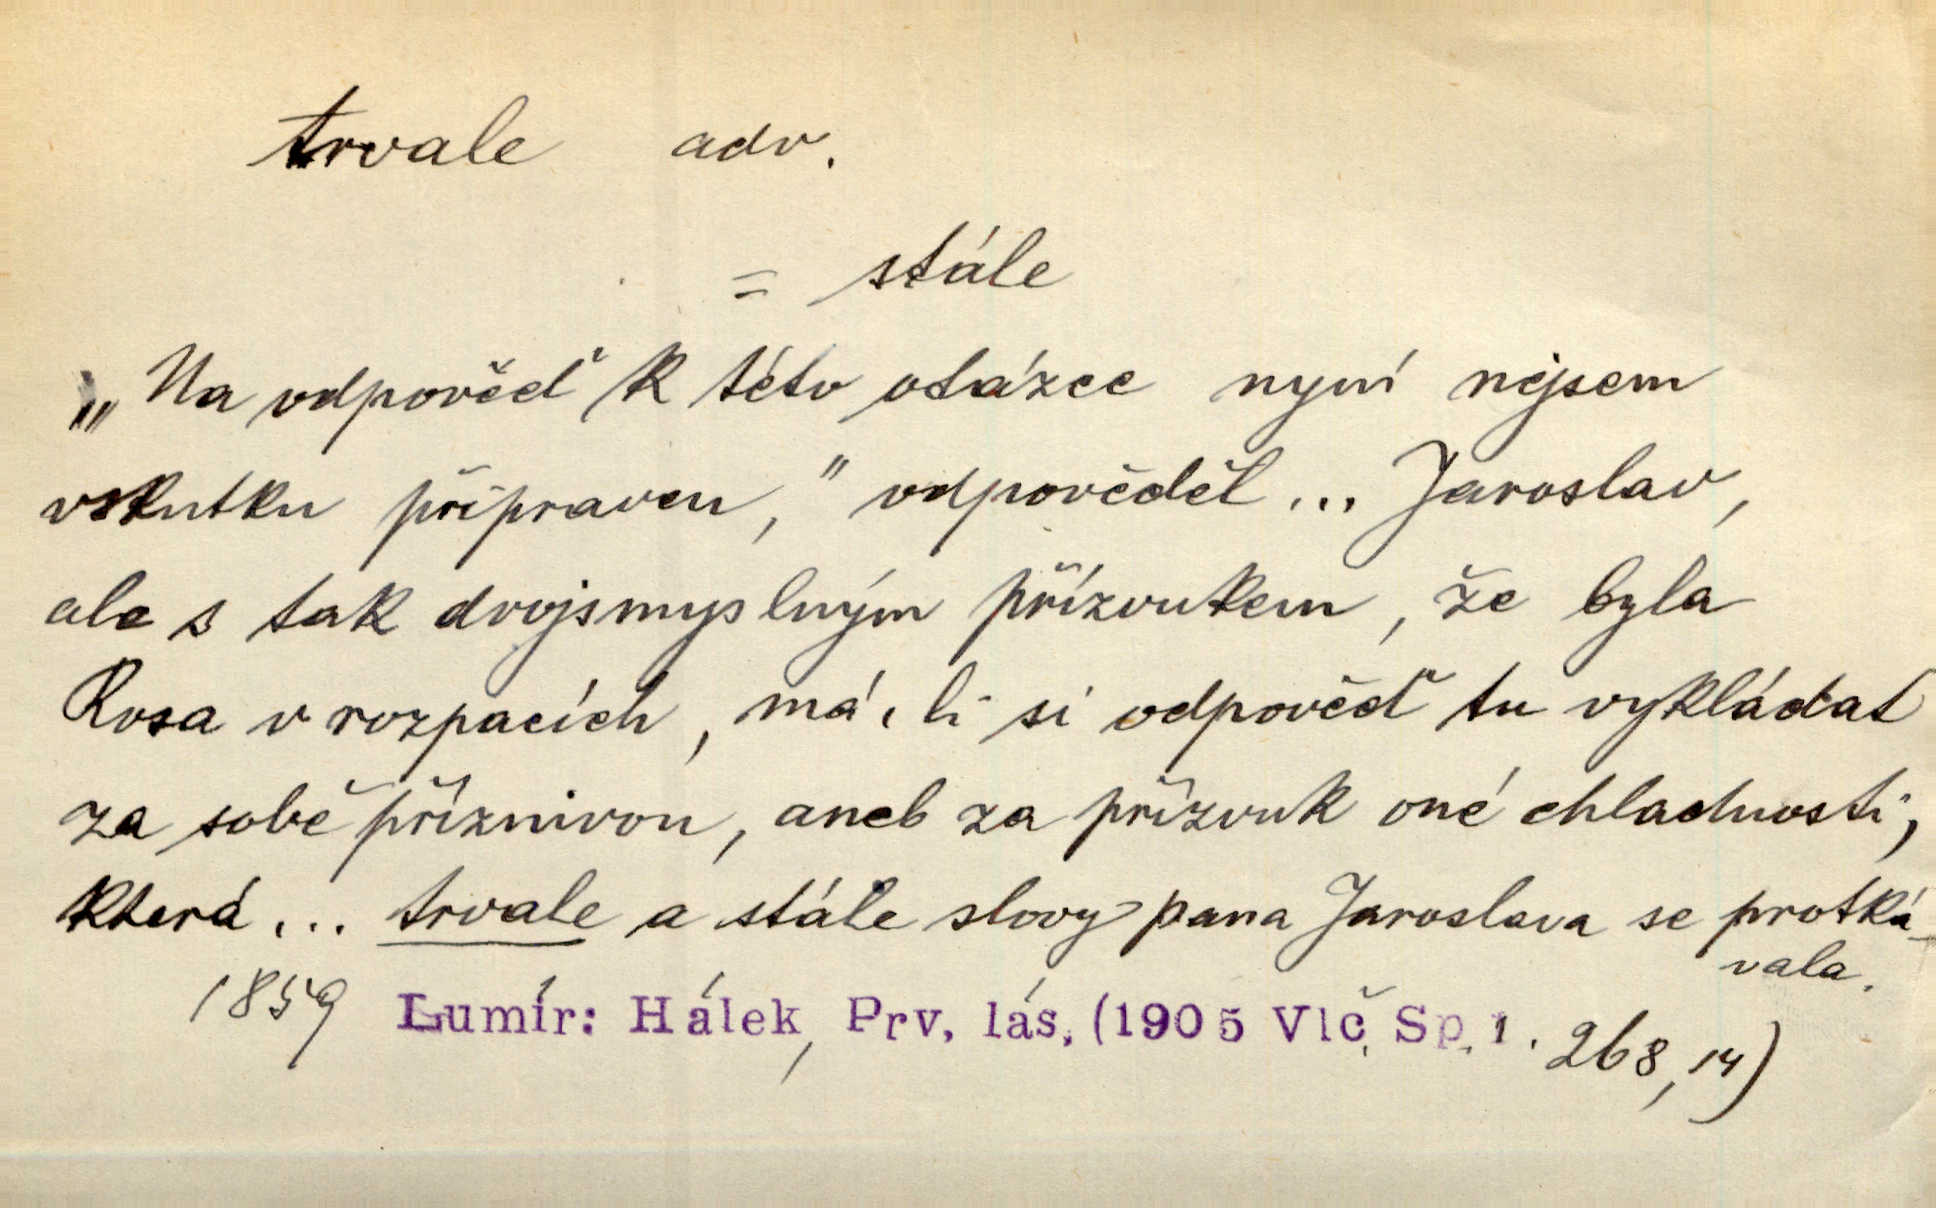 trvale adv.
= stále
„Na odpověď k této otázce nyní nejsem
vskutku připraven," odpověděl ... Jaroslav,
ale s tak dvojsmyslným přízvukem, že byla
Rosa v rozpacích, má-li si odpověď tu vykládat
za sobě příznivou, aneb za přízvuk oné chladnosti,
která ... trvale a stále slovy pana Jaroslava se protká-
vala.
1859 Lumír: Hálek, Prv. lás. (1905 Vlč. Sp. 1. 268,14)